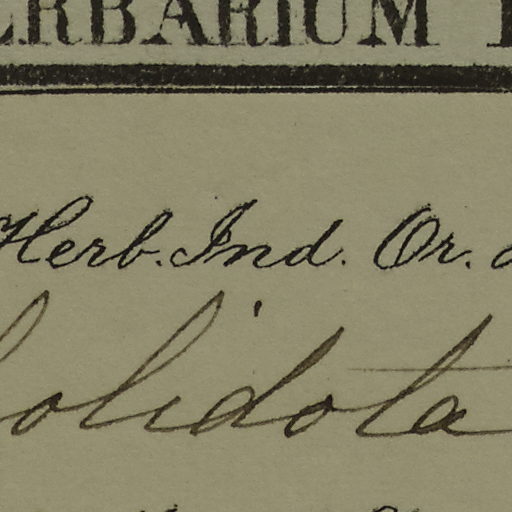 ERBARIUM
Herb. Ind. Or.
olidota